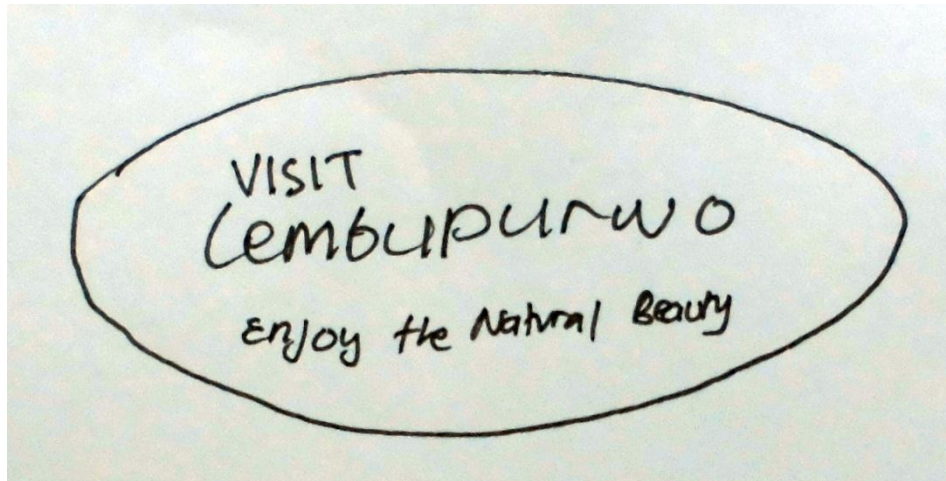 VISIT
Lembupurwo
Enjoy the Natural Beauty